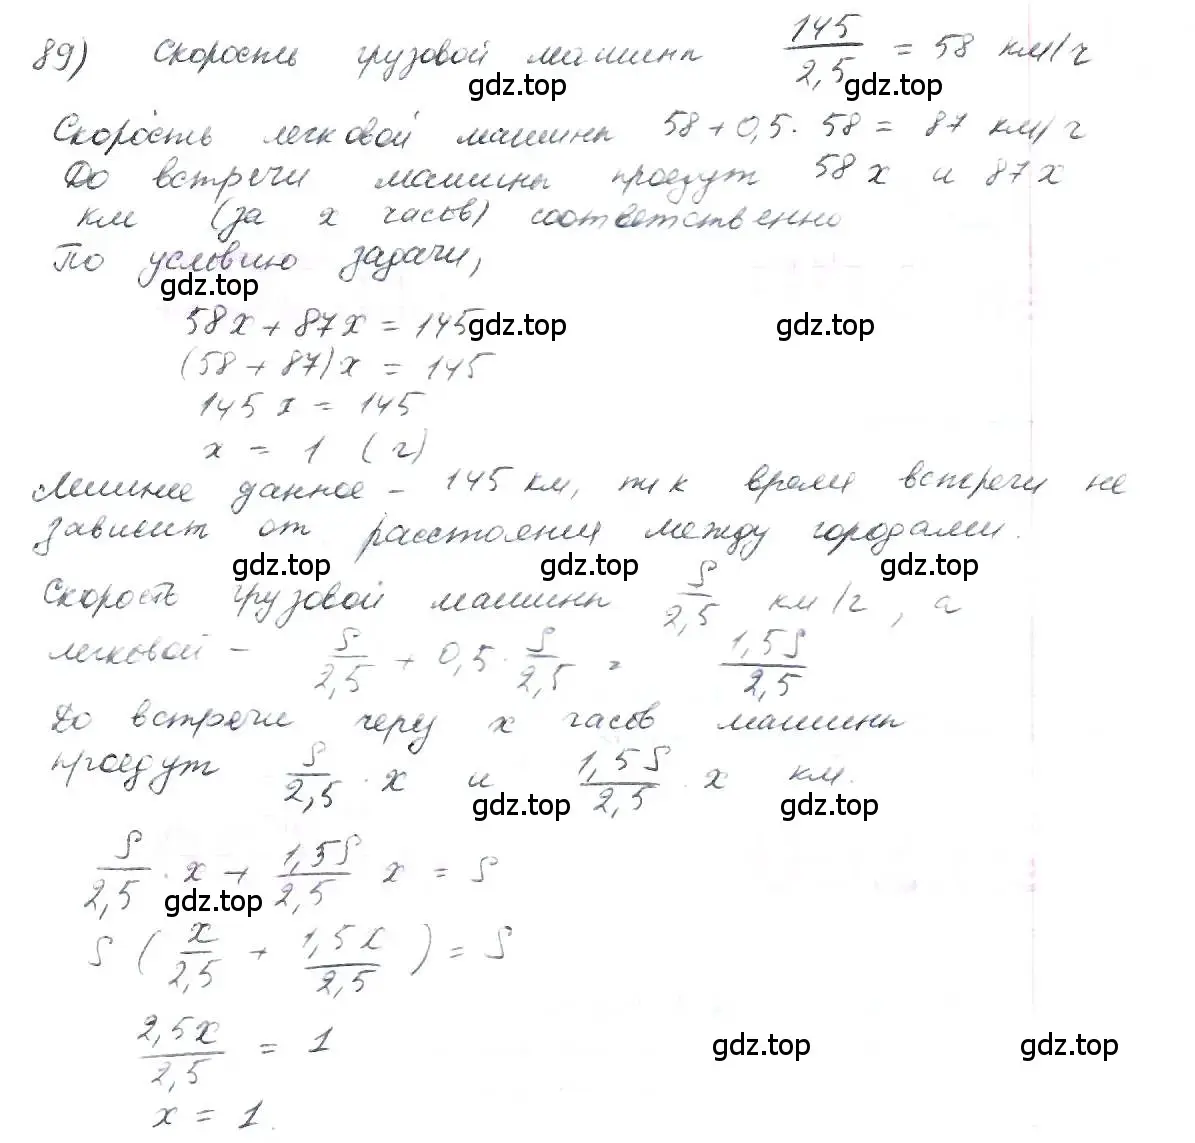 89) Скорость грузовой машины 145/2,5 = 58 км/ч
gdz.top gdz.top
Скорость легковой машины 58 + 0,5 · 58 = 87 км/ч
До встречи машины проедут 58x и 87x
км (за x часов) соответственно
По условию задачи,
gdz.top
58x + 87x = 145
gdz.top gdz.top
(58 + 87)x = 145
145x = 145
x = 1 (ч)
Лишнее данное – 145 км, т.к время встречи не
зависит от расстояния между городами.
gdz.top gdz.top gdz.top
Скорость грузовой машины S/2,5 км/ч, а
легковой – S/2,5 + 0,5 · S/2,5 = 1,5S/2,5
До встречи через x часов машины
проедут S/2,5 · x и 1,5S/2,5 · x км.
gdz.top gdz.top
S/2,5 · x + 1,5S/2,5 x = S
gdz.top
S (x/2,5 + 1,5x/2,5) = S
2,5x/2,5 = 1
gdz.top gdz.top
x = 1.